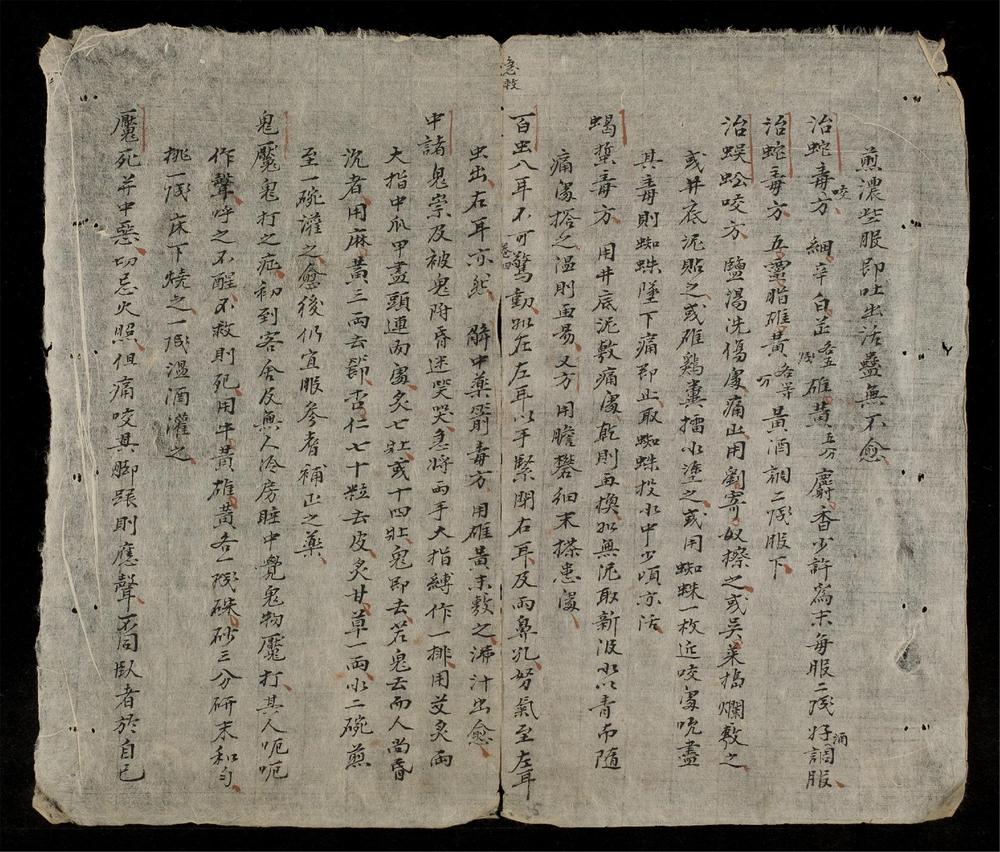 煎濃些服即吐出活蠱無不愈
治蛇咬毒方 細辛白芷各五錢雄黃五分麝香少許為末每服二錢好酒調服
治蛇毒方 五靈脂雄黃各等分黃酒調二錢服下
治蜈蚣咬方 鹽湯洗傷處痛止用劉寄奴擦之或吳茱搗爛敷之
或井底泥貼之或雄鷄糞擂水塗之或用蜘蛛一枚近咬處吮盡
其毒則蜘蛛墜下痛即止取蜘蛛投水中少頃亦活
蝎蜇毒方 用井底泥敷痛處乾則再換如無泥取新汲水以青布隨
痛處搭之溫則再易又方用膽礬細末搽患處
急救
卷四
百虫入耳不可驚動如在左耳以手緊閉右耳及兩鼻孔努氣至左耳
虫出右耳亦然 解中藥箭毒方 用雄黃末敷之沸汁出愈
中諸鬼祟及被鬼附昏迷哭哭急將兩手大指縛作一排用艾灸兩
大指中爪甲盡頭連兩處灸七壯或十四壯鬼即去若鬼去而人尚昏
沉者用麻黃三兩去節杏仁七十粒去皮炙甘草一兩水二碗煎
至一碗灌之愈後仍宜服參耆補正之藥
鬼魘鬼打之症初到客舍及無人冷房睡中覺鬼物魘打其人呃呃
作聲呼之不醒不救則死用牛黃雄黃各一錢硃砂三分研末和勻
挑一錢床下燒之一錢溫酒灌之
魘死并中惡切忌火照但痛咬其脚跟則應聲而同臥者於自己